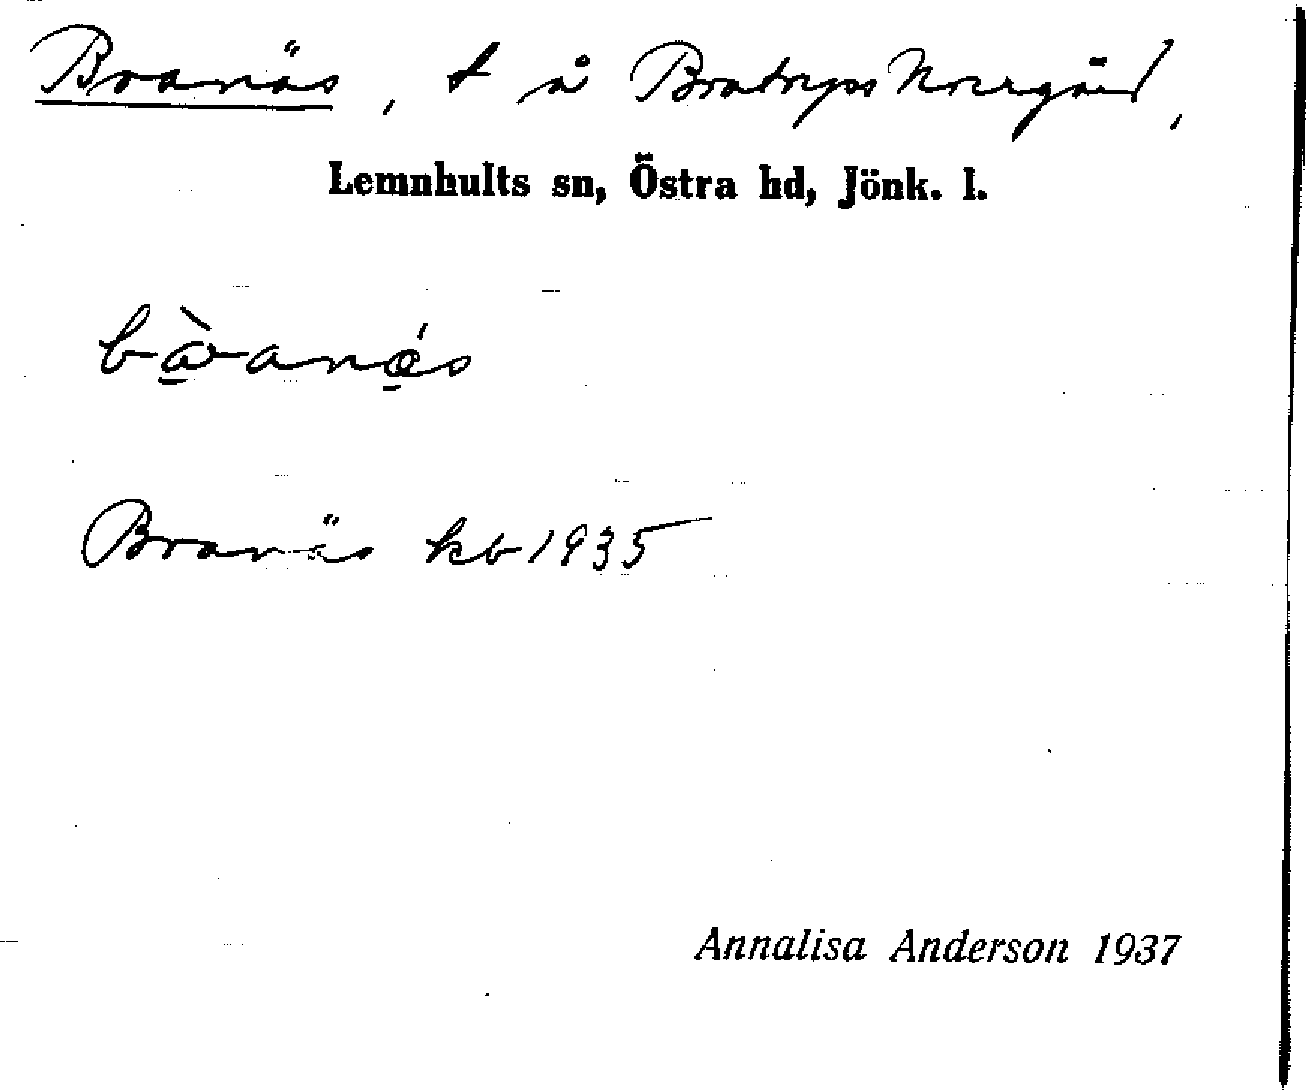 Branäs, t å Bratorps Norrgård,
Lemnhults sn, Östra hd, Jönk. l.
Branäs kb 1935
Annalisa Anderson 1937